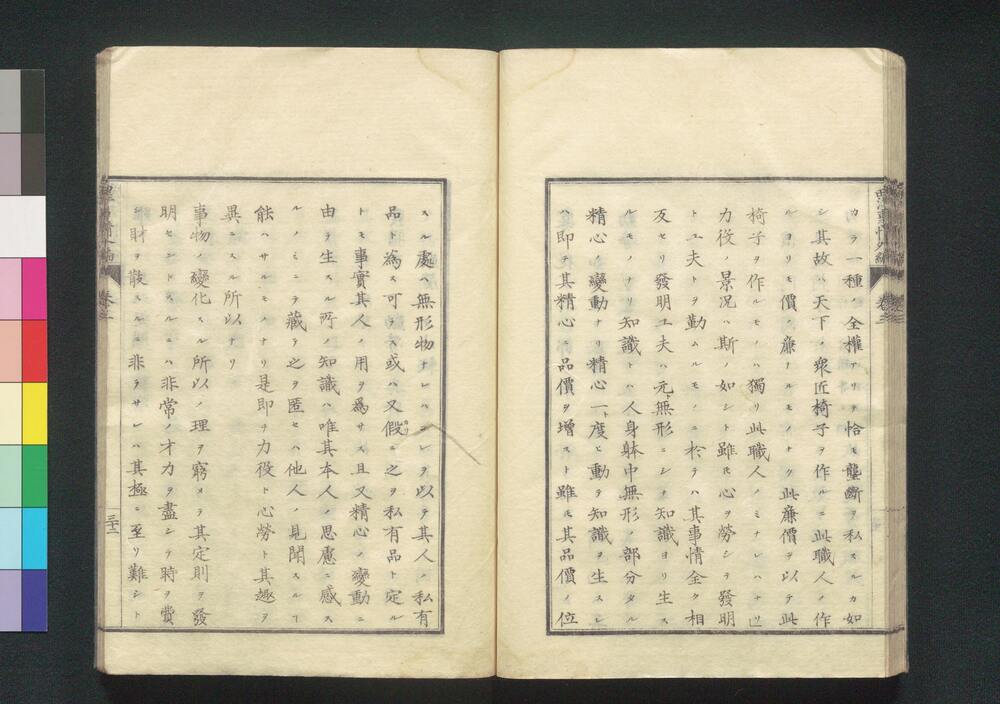 カラ一種ノ全權アリテ恰モ壟斷ヲ私スルカ如
シ其故ハ天下ノ衆匠椅子ヲ作ルニ此職人ノ作
ルヨリモ價ノ廉ナルモノナク此廉價ヲ以テ此
椅子ヲ作ルモノハ獨リ此職人ノミナレハナリ
力役ノ景況ハ斯ノ如シト雖𪜈心ヲ勞シテ發明
ト工夫トヲ勤ムルモノニ於テハ其事情全ク相
反セリ發明工夫ハ元ト無形ニシテ知識ヨリ生ス
ルモノナリ知識トハ人身躰中無形ノ部分タル
精心ノ變動ナリ精心一ト度ヒ動テ知識ヲ生スレ
ハ即チ其精心ニ品價ヲ增スト雖𪜈其品價ノ位
スル處ハ無形物ナレハコレヲ以テ其人ノ私有
品ト為ス可ラス或ハ又假ニ之ヲ私有品ト定ル
トモ事實其人ノ用ヲ為サス且又精心ノ變動ニ
由テ生スル所ノ知識ハ唯其本人ノ思慮ニ感ス
ルノミニテ藏テ之ヲ匿セハ他人ノ見聞スルヿ
能ハサルモノナリ是即ヲ力役ト心勞ト其趣ヲ
異ニスル所以ナリ
事物ノ變化スル所以ノ理ヲ窮メテ其定則ヲ發
明セントスルニハ非常ノ才力ヲ盡シテ時ヲ費
シ財ヲ散スルニ非ラサレハ其極ニ至リ難シト
卷之三
三十二